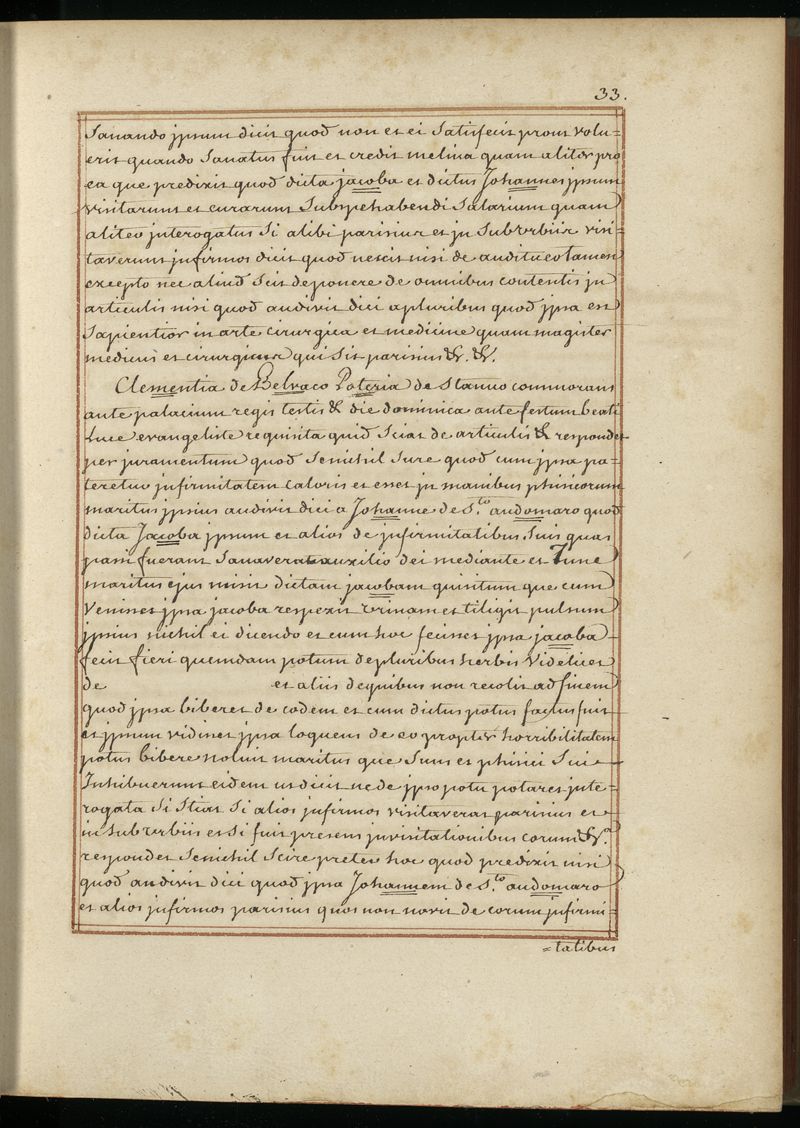 33.
Sanando jpsum dicit quod non et ei Satisfecit prout volu=
erit quando Sanatus fuit et credit melius quam aliter pro
ea que predixit quod dicta jacoba et dictus Johannes jpsum
visitarunt et curarunt Sub spe habendi Salarium quam
aliter jnterogatus Si alibi parisius et jn Suburbiis visi=
taverunt jnfirmos dicit quod nescit nisi de auditu eo tamen
excepto nec aliud Scit deponere de omnibus contentis jn
articulis nisi quod audivit dici a pluribus quod jpsa est
Sapientior in arte cirurgica et medicine quam magister
medicus et cirurgicus qui Sit parisius &. &.
Clementia de Belvaco Poteria de Stanno commorans
ante palacium regis testis & die dominica ante festum beati
Luce evangeliste requisita quid Sciat de articulis & respondet
per juramentum quod Se nichil Scire quod cum jpsa pa=
teretur jnfirmitatem caloris et esset jn manibus phisicorum
maritus jpsius audivit dici a Johanne de S.to audomaro quod
dicta Jacoba jpsum et alios de jnfirmitatibus Suis quas
passi fuerant Sanaverat auxilio dei mediante et Tunc
maritus ejus misit dictam jacobam quisitum que cum
Venisset jpsa jacoba respexit Urinam et tiligit pulsum
jpsius nichil ei dicendo et cum hoc fecisset jpsa jacoba
fecit fieri quemdam potum de pluribus herbis Videlicet
de et aliis de quibus non recolit ad finem
quod jpsa biberet de eodem et cum dictus potus factus fuit
et jpsum vidisset jpsa loquens de eo propter horribilitatem
potus bibere noluit maritus que Suus et phisici Sui
Inhibuerunt eidem ut dicit ne de jpso potu potaret jnte=
rogata Si Sciat Si alios jnfirmos visitaverat parisius et
in Suburbiis et Si fuit presens jn visitationibus eorum &.a
respondet Se nichil Scire preter hoc quod predixit nisi
quod audivit dici quod jpsa Johannem de S.to audomaro
et alios jnfirmos parisius quos non novit de eorum jnfirmi=
=tatibus